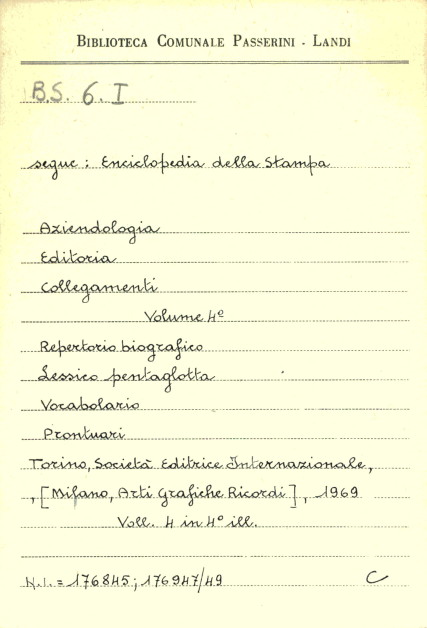 BIBLIOTECA COMUNALE PASSERINI - LANDI
B.S. 6. I
segue : Enciclopedia della Stampa
Aziendologia
Editoria
Collegamenti
Volume 4º
Repertorio biografico
Lessico pentaglotta
Vocabolario
Prontuari
Torino, Società Editrice Internazionale,
, [Milano, Arti Grafiche Ricordi], 1969
Voll. 4 in 4º ill.
N.I. = 176845; 176947/49 C